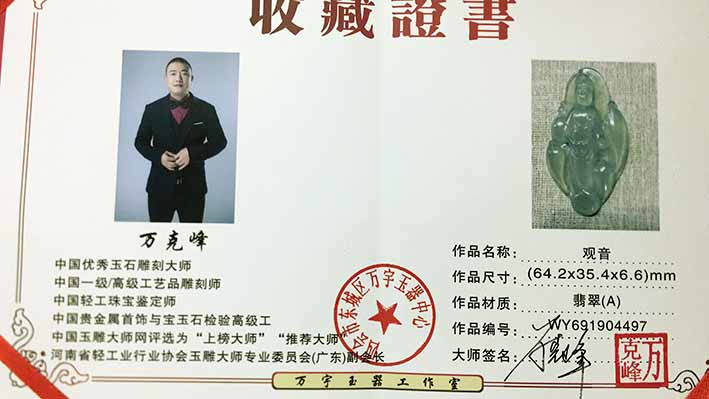 收藏證書
万克峰
中国优秀玉石雕刻大师
中国一级/高级工艺品雕刻师
中国轻工珠宝鉴定师
中国贵金属首饰与宝玉石检验高级工
中国玉雕大师网评选为“上榜大师”“推荐大师”
河南省轻工业行业协会玉雕大师专业委员会(广东)副会长
四会市东城区万宇玉器中心
作品名称: 观音
作品尺寸: (64.2x35.4x6.6)mm
作品材质: 翡翠(A)
作品编号: WY691904497
大师签名:
万克峰
万宇玉器工作室